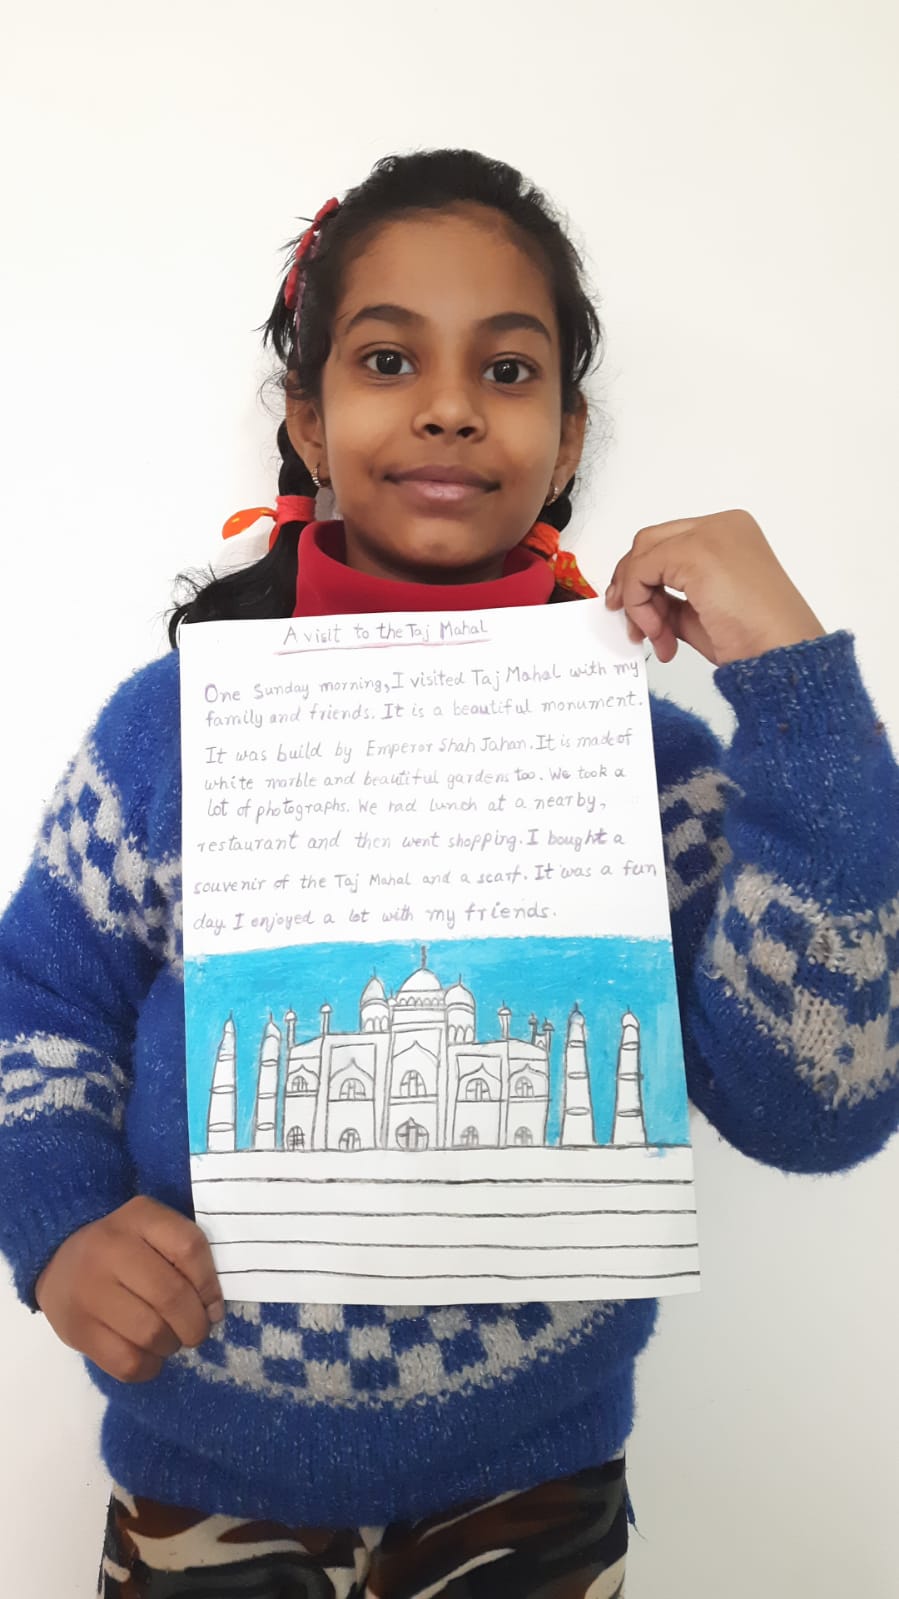 A visit to the Taj Mahal
One Sunday morning, I visited Taj Mahal with my
family and friends. It is a beautiful monument.
It was build by Emperor Shah Jahan. It is made of
white marble and beautiful gardens too. We took a
lot of photographs. We had lunch at a nearby,
restaurant and then went shopping. I bought a
souvenir of the Taj Mahal and a scarf. It was a fun
day. I enjoyed a lot with my friends.